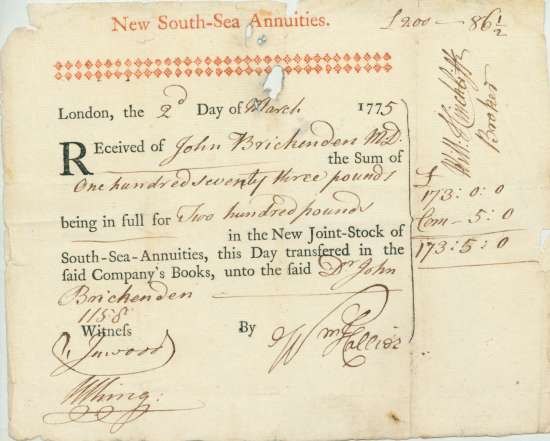 New South-Sea Annuities.
£200 — 86 1/2
London, the 2d Day of March 1775
REceived of John Brickenden MD.
the Sum of
One hundred seventy three pounds
being in full for Two hundred pounds
in the New Joint-Stock of
South-Sea-Annuities, this Day transfered in the
said Company's Books, unto the said Dr John
Brickenden
1158
Witness By Wm Collier
Inwood
Broker
£
173: 0: 0
Com - 5: 0
173: 5: 0